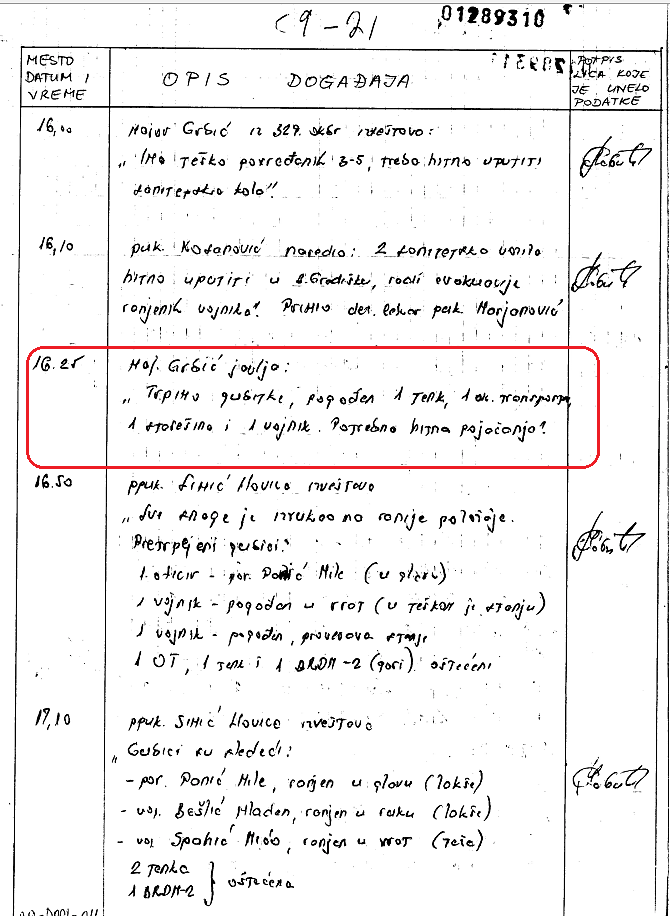 (9-2)
01289310
MESTO DATUM I VREME
OPIS DOGAĐAJA
POTPIS LICA KOJE JE UNELO PODATKE
16,00
Major Grbić iz 329. okbr izveštava:
„Ima teško povređenih 3-5, treba hitno uputiti
sanitetska kola".
16,10
puk. Kosanović naredio: 2 sanitetska vozila
hitno uputiti u S. Gradišku, radi evakuacije
ranjenih vojnika". Primio dež. lekar puk. Marjanović
16.25
Maj. Grbić javlja:
„Trpimo gubitke, pogođen 1 tenk, 1 ok. transporter,
1 starešina i 1 vojnik. Potrebno hitna pojačanja".
16.50
ppuk. Simić Slavico izveštava
„Sve snage je izvukao na ranije položaje.
Pretrpljeni gubici:
1 oficir - por. Panić Mile (u glavu)
1 vojnik - pogođen u vrat (u teškom je stanju)
1 vojnik - pogođen,
1 OT, 1 tenk i 1 BRDM-2 (gori) oštećeni
17,10
ppuk. Simić Slavico izveštava
„Gubici su sledeći:
- por. Panić Mile, ranjen u glavu (lakše)
- voj. Bešlić Mladen, ranjen u ruku (lakše)
- voj. Spahić Mićo, ranjen u vrat (teže)
2 tenka
1 BRDM-2 } oštećena